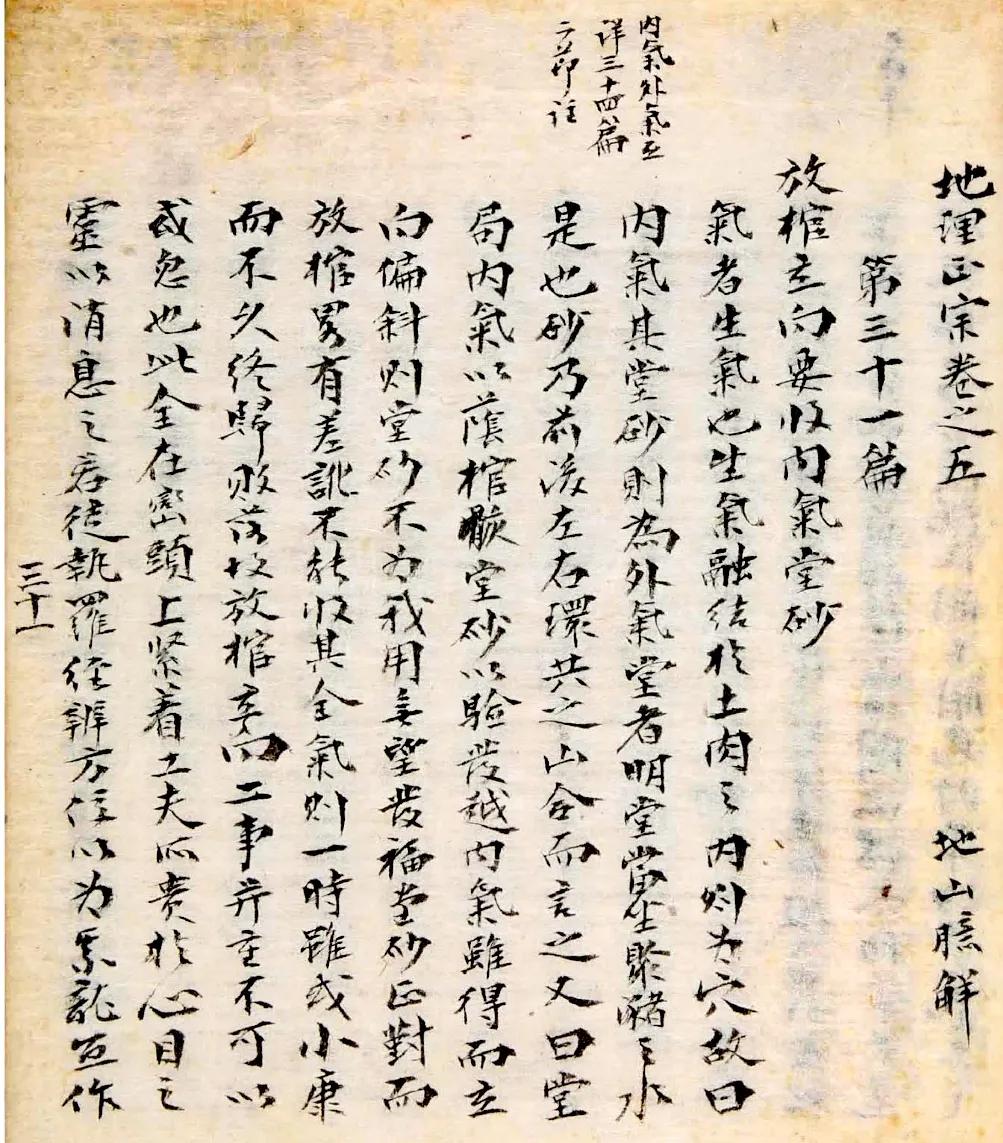 地理正宗卷之五　地山臆解
第三十一篇
內氣外氣互
詳三十四篇
二節註
放棺立向要收內氣堂砂
氣者生氣也生氣融結於土肉之內則为穴故曰
內氣其堂砂則為外氣堂者明堂當坐聚豬之水
是也砂乃前後左右環共之山合而言之又曰堂
局內氣以蔭棺骸堂砂以驗發越內氣雖得而立
向偏斜则堂砂不为我用妄望發福堂砂正對而
放棺畧有差訛不能收其全氣则一時雖或小康
而不久终歸敗落故放棺立向二事并重不可以
或忽也此全在巒頭上緊着工夫所貴於心目之
靈以消息之若徒執羅经辨方位以为某龍宜作
三十一